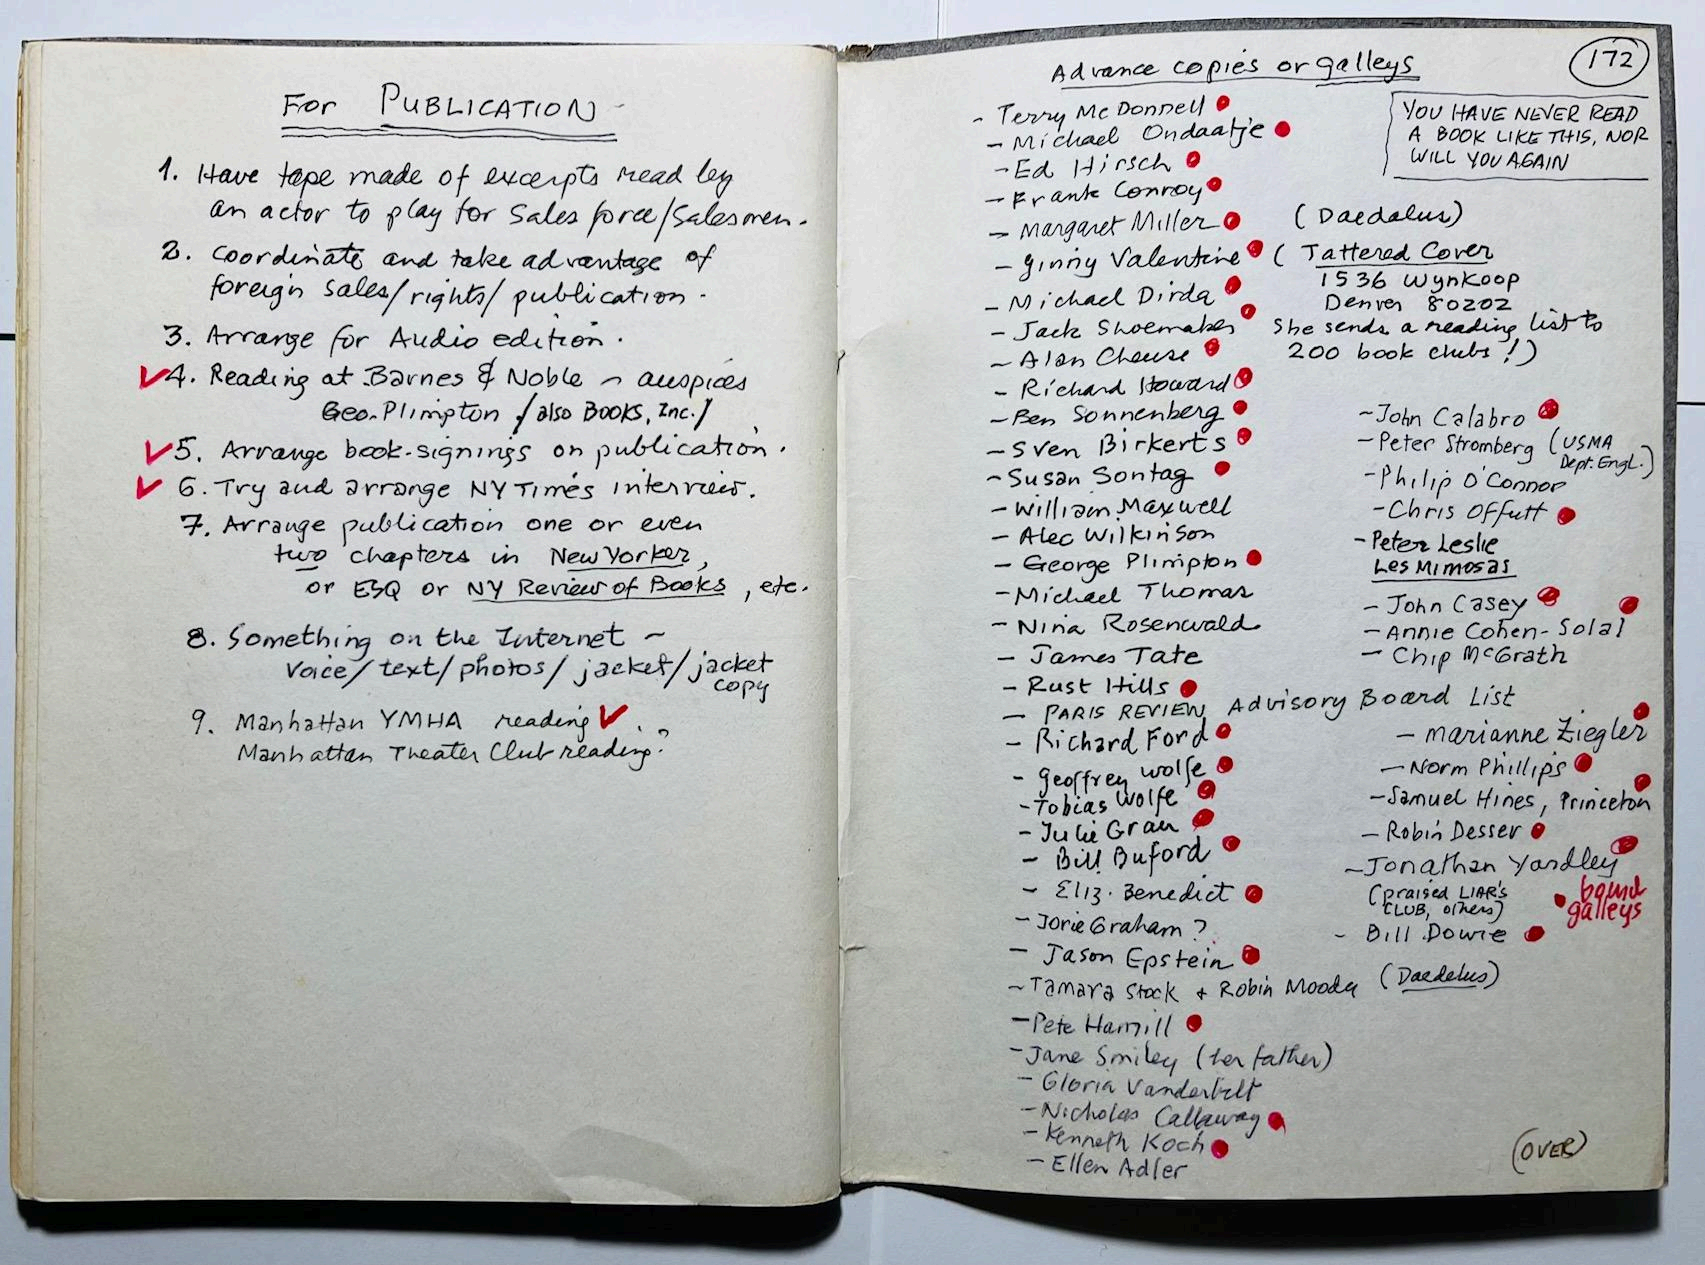 For PUBLICATION
1. Have tape made of excerpts read by
an actor to play for sales force/salesmen.
2. Coordinate and take advantage of
foreign sales/rights/publication.
3. Arrange for Audio edition.
4. Reading at Barnes & Noble ~ auspices
Geo. Plimpton /also BOOKS, Inc./
5. Arrange book-signings on publication.
6. Try and arrange NY Times interview.
7. Arrange publication one or even
two chapters in New Yorker,
or ESQ or NY Review of Books, etc.
8. Something on the Internet ~
voice/text/photos/jacket/jacket
copy
9. Manhattan YMHA reading.
Manhattan Theater Club reading?
Advance copies or galleys
172
YOU HAVE NEVER READ
A BOOK LIKE THIS, NOR
WILL YOU AGAIN
- Terry McDonnell
- Michael Ondaatje
- Ed Hirsch
- Frank Conroy
- Margaret Miller (Daedalus)
- Ginny Valentine ( Tattered Cover
1536 Wynkoop
Denver 80202
She sends a reading list to
200 book clubs!)
- Michael Dirda
- Jack Shoemaker
- Alan Cheuse
- Richard Howard
- Ben Sonnenberg
- Sven Birkerts
- Susan Sontag
- William Maxwell
- Alec Wilkinson
- George Plimpton
- Michael Thomas
- Nina Rosenwald
- James Tate
- Rust Hills
- PARIS REVIEW Advisory Board List
- Richard Ford
- Geoffrey Wolfe
- Tobias Wolfe
- Julie Grau
- Bill Buford
- Eliz. Benedict
- Jorie Graham ?
- Jason Epstein
- Tamara Stock + Robin Moody (Daedelus)
- Pete Hamill
- Jane Smiley (her father)
- Gloria Vanderbilt
- Nicholas Callaway
- Kenneth Koch
- Ellen Adler
- John Calabro
- Peter Stromberg (USMA
Dept. Engl.)
- Philip O'Connor
- Chris Offutt
- Peter Leslie
Les Mimosas
- John Casey
- Annie Cohen-Solal
- Chip McGrath
- Marianne Ziegler
- Norm Phillips
- Samuel Hines, Princeton
- Robin Desser
- Jonathan Yardley
(praised LIAR'S
CLUB, others)
bound
galleys
- Bill Dowie
(OVER)